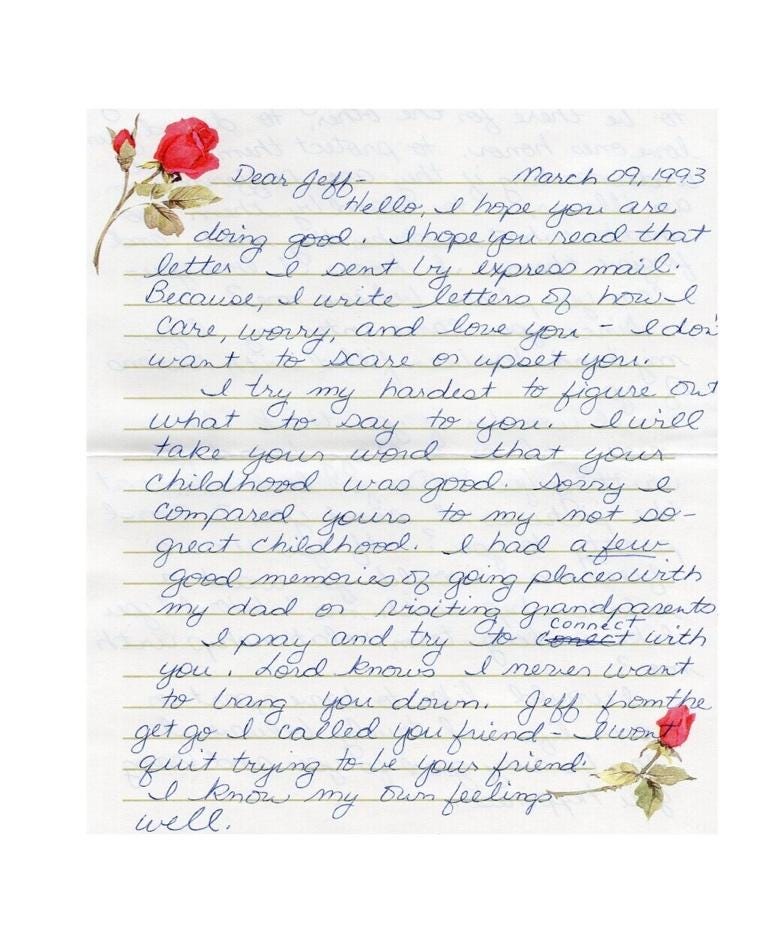 Dear Jeff- March 09, 1993
Hello, I hope you are
doing good. I hope you read that
letter I sent by express mail.
Because, I write letters of how I
care, worry, and love you - I don
want to scare or upset you.
I try my hardest to figure out
what to say to you. I will
take your word that your
childhood was good. Sorry I
compared yours to my not so-
great childhood. I had a few
good memories of going places with
my dad or visiting grandparents
connect
I pray and try to conect with
you. Lord knows I never want
to bang you down. Jeff from the
get go I called you friend - I won't
quit trying to be your friend.
I know my own feelings
well.